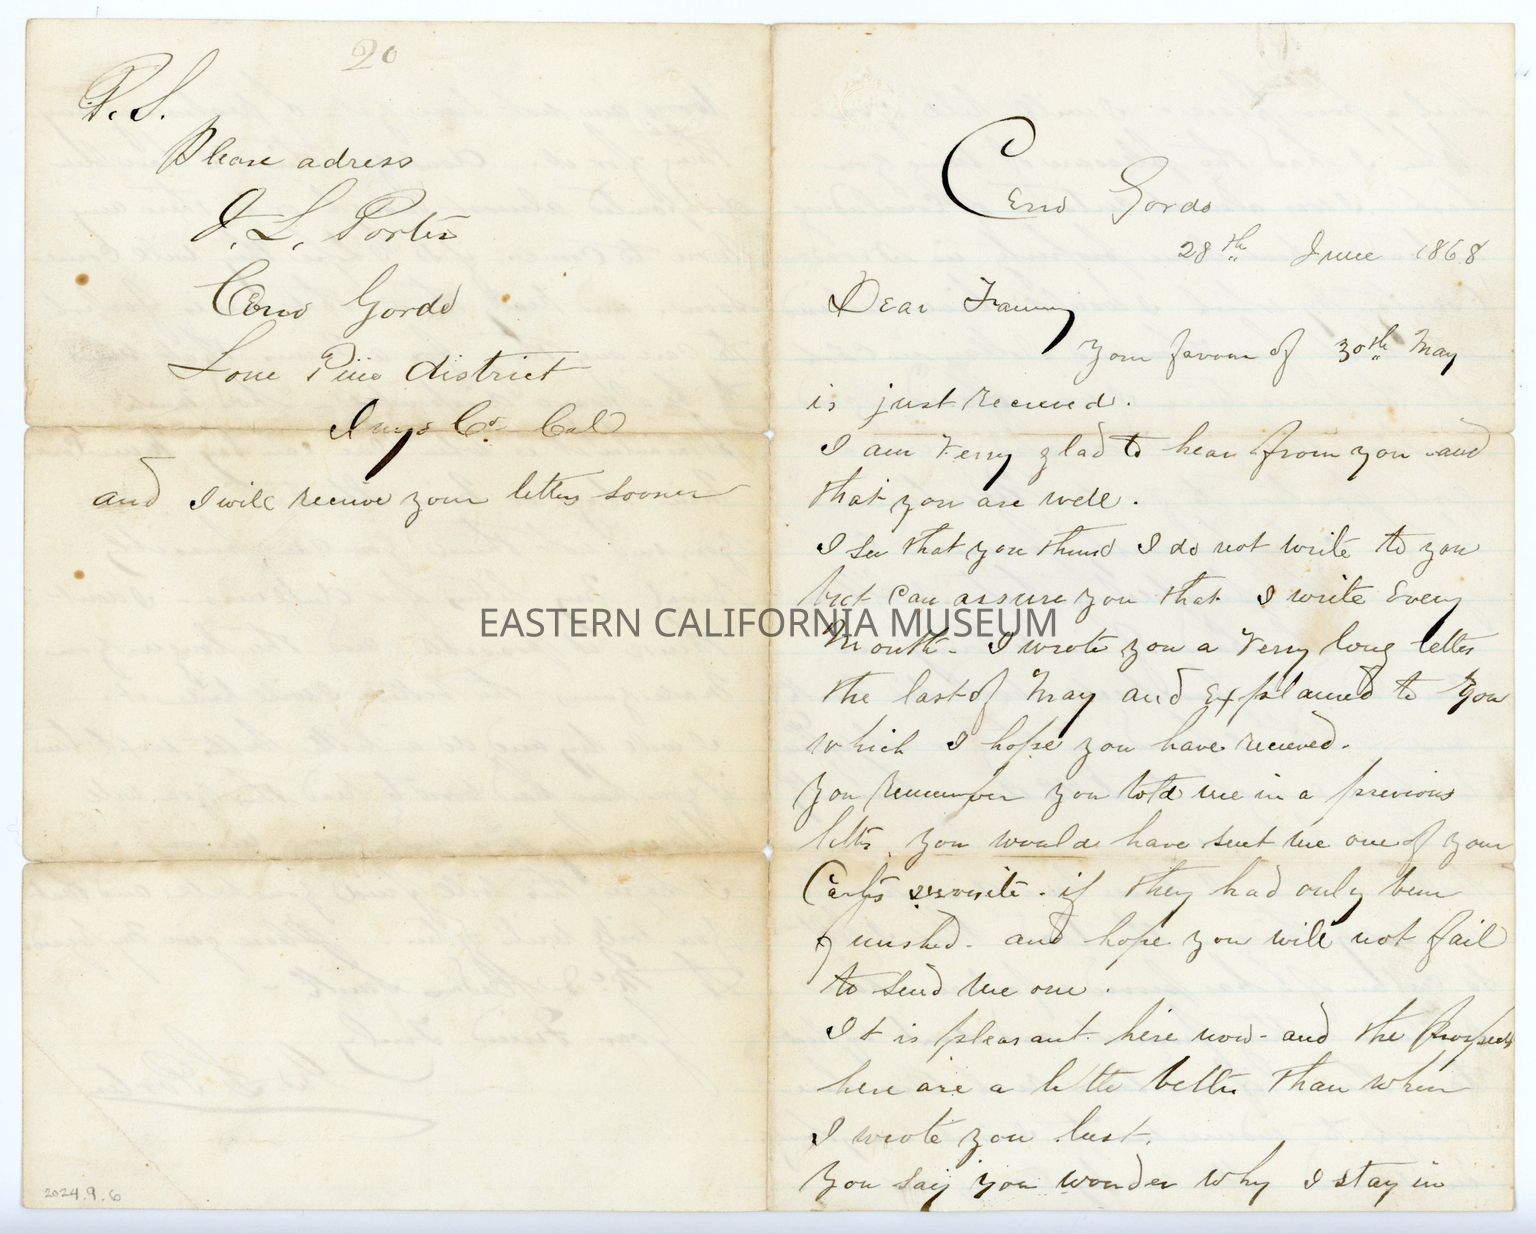 20
P.S.
Please adress
J. L. Porter
Cerro Gordo
Lone Pine district
Inyo Co. Cal
and I will receive your letters sooner
2024.9.6
Cerro Gordo
28th June 1868
Dear Fanny
your favour of 30th May
is just recieved.
I am very glad to hear from you and
that you are well.
I see that you think I do not write to you
but can assure you that I write Every
Month. I wrote you a very long letter
the last of May and Explained to you
which I hope you have recieved.
You remember you told me in a previous
letter you would have sent me one of your
Cartes if they had only been
finished. and hope you will not fail
to send me one.
It is pleasant here now. and the prospects
here are a little better than when
I wrote you last.
You say you wonder why I stay in
EASTERN CALIFORNIA MUSEUM